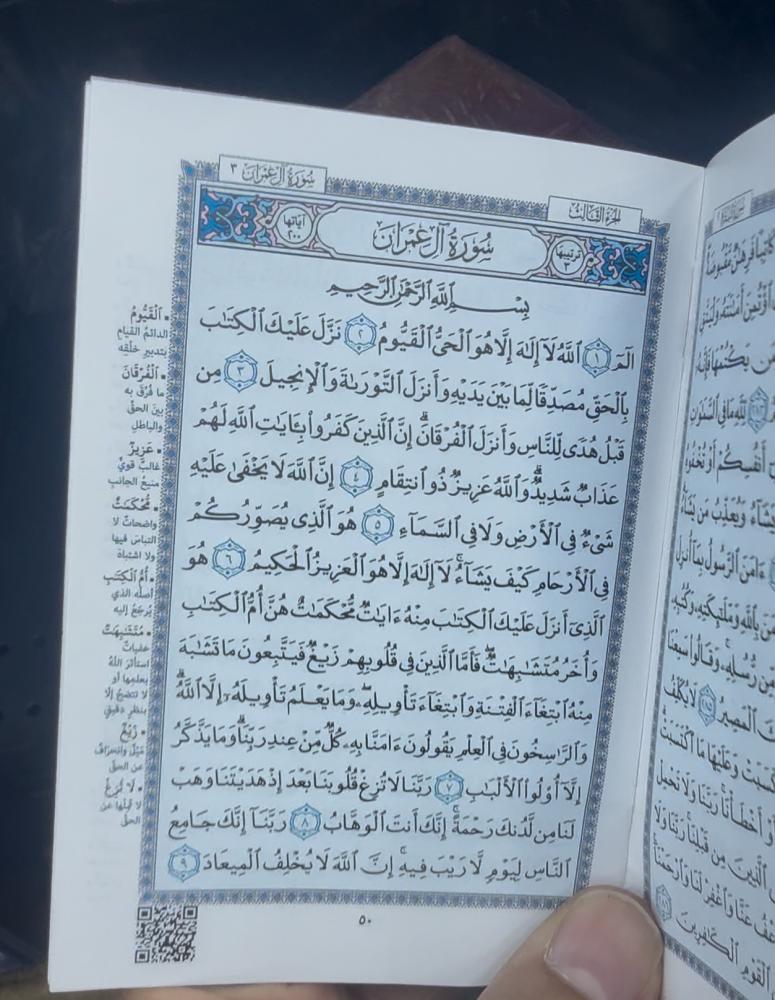 سُورَةُ آلِ عِمْرَان ٣
الجُزْءُ الثَّالِث
ترتيبها ٣
سُورَةُ آلِ عِمْرَان
آيَاتُهَا ٢٠٠
بِسْمِ اللَّهِ الرَّحْمَٰنِ الرَّحِيمِ
الٓمٓ ١ اللَّهُ لَآ إِلَٰهَ إِلَّا هُوَ الْحَىُّ الْقَيُّومُ ٢ نَزَّلَ عَلَيْكَ الْكِتَٰبَ
بِالْحَقِّ مُصَدِّقًا لِّمَا بَيْنَ يَدَيْهِ وَأَنزَلَ التَّوْرَىٰةَ وَالْإِنجِيلَ ٣ مِن
قَبْلُ هُدًى لِّلنَّاسِ وَأَنزَلَ الْفُرْقَانَ ۗ إِنَّ الَّذِينَ كَفَرُوا بِـَٔايَٰتِ اللَّهِ لَهُمْ
عَذَابٌ شَدِيدٌ ۗ وَاللَّهُ عَزِيزٌ ذُو انتِقَامٍ ٤ إِنَّ اللَّهَ لَا يَخْفَىٰ عَلَيْهِ
شَىْءٌ فِى الْأَرْضِ وَلَا فِى السَّمَآءِ ٥ هُوَ الَّذِى يُصَوِّرُكُمْ
فِى الْأَرْحَامِ كَيْفَ يَشَآءُ ۚ لَآ إِلَٰهَ إِلَّا هُوَ الْعَزِيزُ الْحَكِيمُ ٦ هُوَ
الَّذِىٓ أَنزَلَ عَلَيْكَ الْكِتَٰبَ مِنْهُ ءَايَٰتٌ مُّحْكَمَٰتٌ هُنَّ أُمُّ الْكِتَٰبِ
وَأُخَرُ مُتَشَٰبِهَٰتٌ ۖ فَأَمَّا الَّذِينَ فِى قُلُوبِهِمْ زَيْغٌ فَيَتَّبِعُونَ مَا تَشَٰبَهَ
مِنْهُ ابْتِغَآءَ الْفِتْنَةِ وَابْتِغَآءَ تَأْوِيلِهِۦ ۖ وَمَا يَعْلَمُ تَأْوِيلَهُۥٓ إِلَّا اللَّهُ ۗ
وَالرَّٰسِخُونَ فِى الْعِلْمِ يَقُولُونَ ءَامَنَّا بِهِۦ كُلٌّ مِّنْ عِندِ رَبِّنَا ۗ وَمَا يَذَّكَّرُ
إِلَّآ أُولُوا الْأَلْبَٰبِ ٧ رَبَّنَا لَا تُزِغْ قُلُوبَنَا بَعْدَ إِذْ هَدَيْتَنَا وَهَبْ
لَنَا مِن لَّدُنكَ رَحْمَةً ۚ إِنَّكَ أَنتَ الْوَهَّابُ ٨ رَبَّنَآ إِنَّكَ جَامِعُ
النَّاسِ لِيَوْمٍ لَّا رَيْبَ فِيهِ ۚ إِنَّ اللَّهَ لَا يُخْلِفُ الْمِيعَادَ ٩
٥٠
• الْقَيُّومُ
الدائمُ القيام
بتدبيرِ خلْقِه
• الْفُرْقَانَ
ما فُرِّقَ به
بينَ الحقِّ
والباطلِ
• عَزِيزٌ
غالبٌ قويٌّ
منيعُ الجانبِ
• مُّحْكَمَٰتٌ
واضحاتٌ لا
التباسَ فيها
ولا اشتباهَ
• أُمُّ الْكِتَٰبِ
أصلُه الذي
يُرجَعُ إليه
• مُتَشَٰبِهَٰتٌ
خفيّاتٌ
استأثرَ اللهُ
بعلمِها أو
لا تتضحُ إلا
بنظرٍ دقيقٍ
• زَيْغٌ
مَيْلٌ وانحرافٌ
عن الحقِّ
• لَا تُزِغْ
لا تُمِلْها عن
الحقِّ